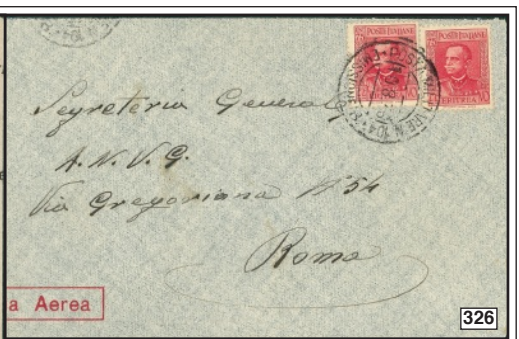 POSTE ITALIANE
POSTE ITALIANE
ERITREA
N 104
Segreteria Generale
A. N. V. G.
Via Gregoriana N° 54
Roma
a Aerea
326